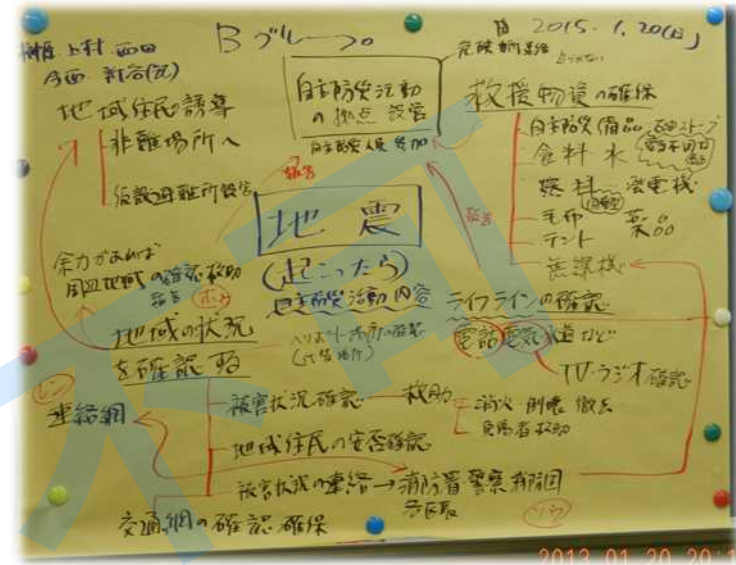 Bグループ
2015.1.20(日)
上村 西田
今西 新谷(記)
自主防災活動
の拠点 設営
自主防災人員 参加
地域住民誘導
非難場所へ
仮設避難所設営
救援物資の確保
自主防災備品 石油ストーブ
食料 水
燃料 発電機
毛布 薬品
テント
無線機
報告
報告
地震
(起こったら)
自主防災活動内容
余力があれば
周辺地域の確認救助
報告
地域の状況
を確認する
ライフラインの確認
電話 電気 水道 など
TV・ラジオ確認
連絡網
被害状況確認 救助
消火 倒壊 撤去
負傷者救助
地域住民の安否確認
被害状況の連絡→消防署 警察 消防団
交通網の確認 確保
2013 01 20 20:1